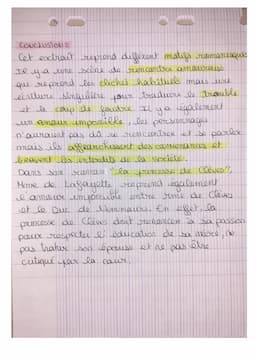 Conclusion :
Cet extrait reprend différent motifs romanesques
il y a une scène de rencontre amoureuse
qui reprend les clichés habituels mais une
écriture singulière pour traduire le trouble
et le coup de foudre. Il y a également
un amour impossible, les personnages
n'auraient pas dû se rencontrer et se parler
mais ils affranchissent des convenances et
bravent les interdits de la société.
Dans son roman "la princesse de Clèves",
Mme de Lafayette reprend également
l'amour impossible entre Mme de Clèves
et le Duc de Nemours. En effet, la
princesse de Clèves doit renoncer à sa passion
pour respecter l'éducation de sa mère, ne
pas trahir son époux et ne pas être
critiqué par la cour.